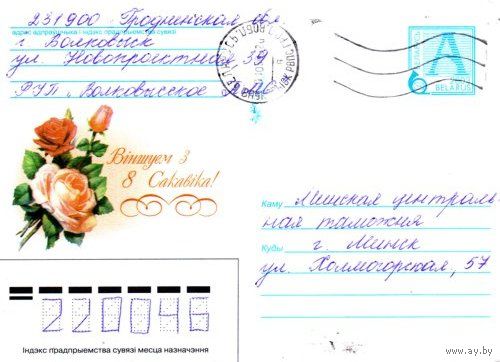 231900 Гродненская обл
адрас адпраўшчыка і індэкс прадпрыемства сувязі
г Волковыск
ул. Новопроектная 39
РУП "Волковысское
A
BELARUS
Віншуем з
8 Сакавіка!
Каму Минская централь-
ная таможня
Куды г. Минск
ул. Холмогорская, 57
220046
Індэкс прадпрыемства сувязі месца назначэння
www.ay.by